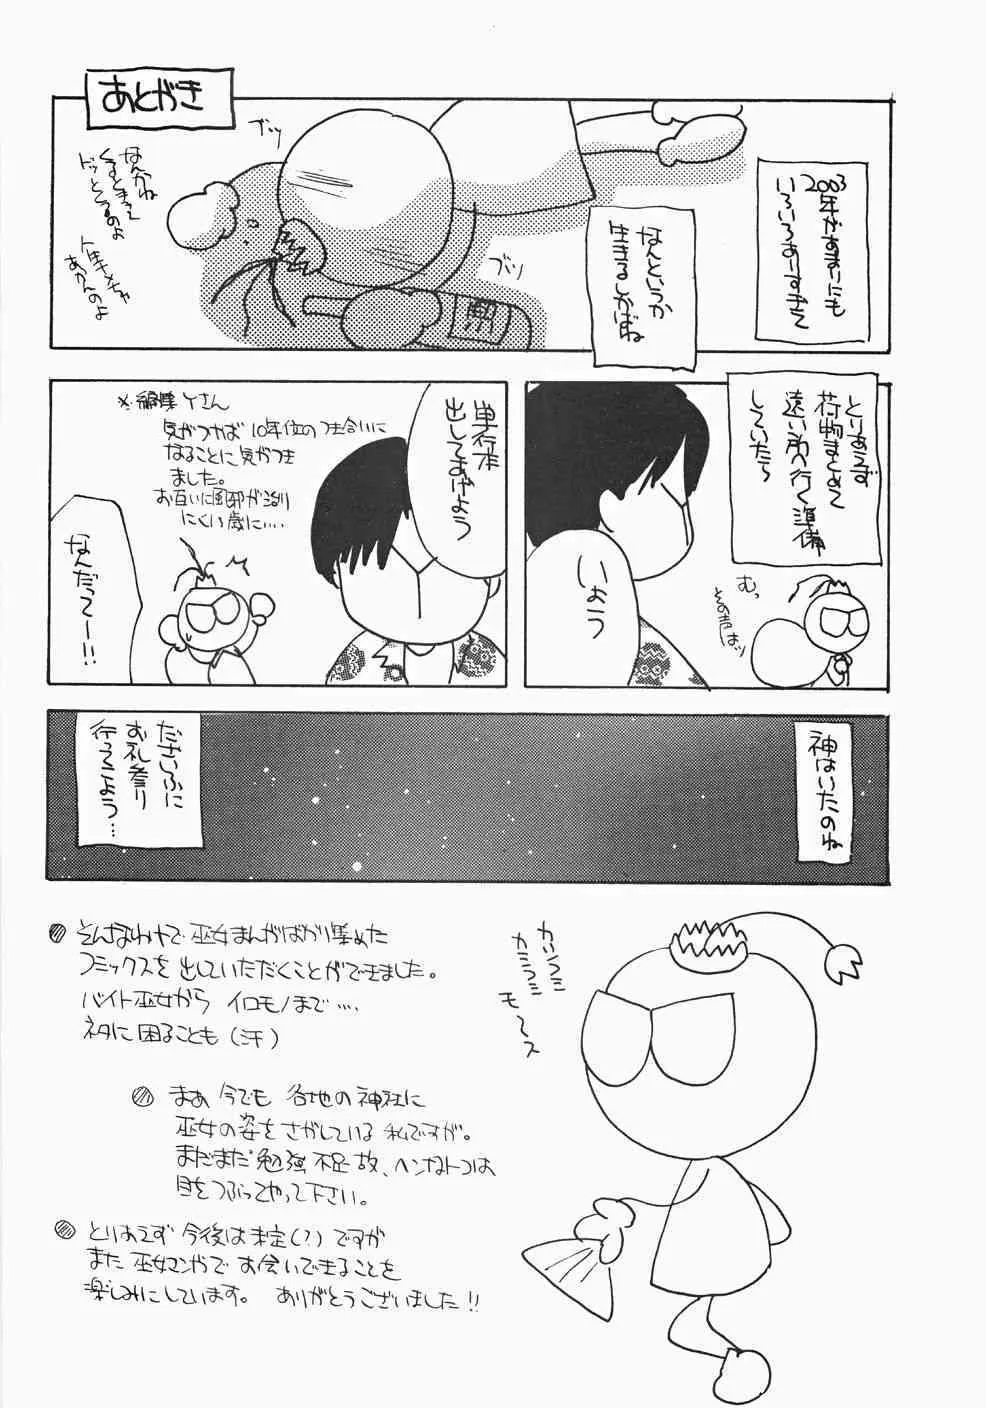 あとがき
2003年があまりにも
いろいろありすぎて
なんというか
生きるしかばね
ブツ
ブツ
なんかね
くるときって
ドッとくるのよ
あかんのよ
とりあえず
荷物まとめて
遠い所へ行く準備
していたら
むっ
その声はッ
いよう
単行本
出してあげよう
※編集Yさん
気がつけば10年位のつき合いに
なることに気がつき
ました。
お互いに風邪が治り
にくい歳に‥‥
なんだってー!!
神はいたのね
だざいふに
お礼参り
行ってこよう…
そんなわけで巫女まんがばかり集めた
コミックスを出していただくことができました。
バイト巫女から イロモノまで‥‥
ネタに困ることも(汗)
まあ 今でも 各地の神社に
巫女の姿をさがしている私ですが。
まだまだ勉強不足故、ヘンなトコは
目をつぶってやって下さい。
とりあえず 今後は未定(?)ですが
また巫女マンガでお会いできることを
楽しみにしています。 ありがとうございました!!